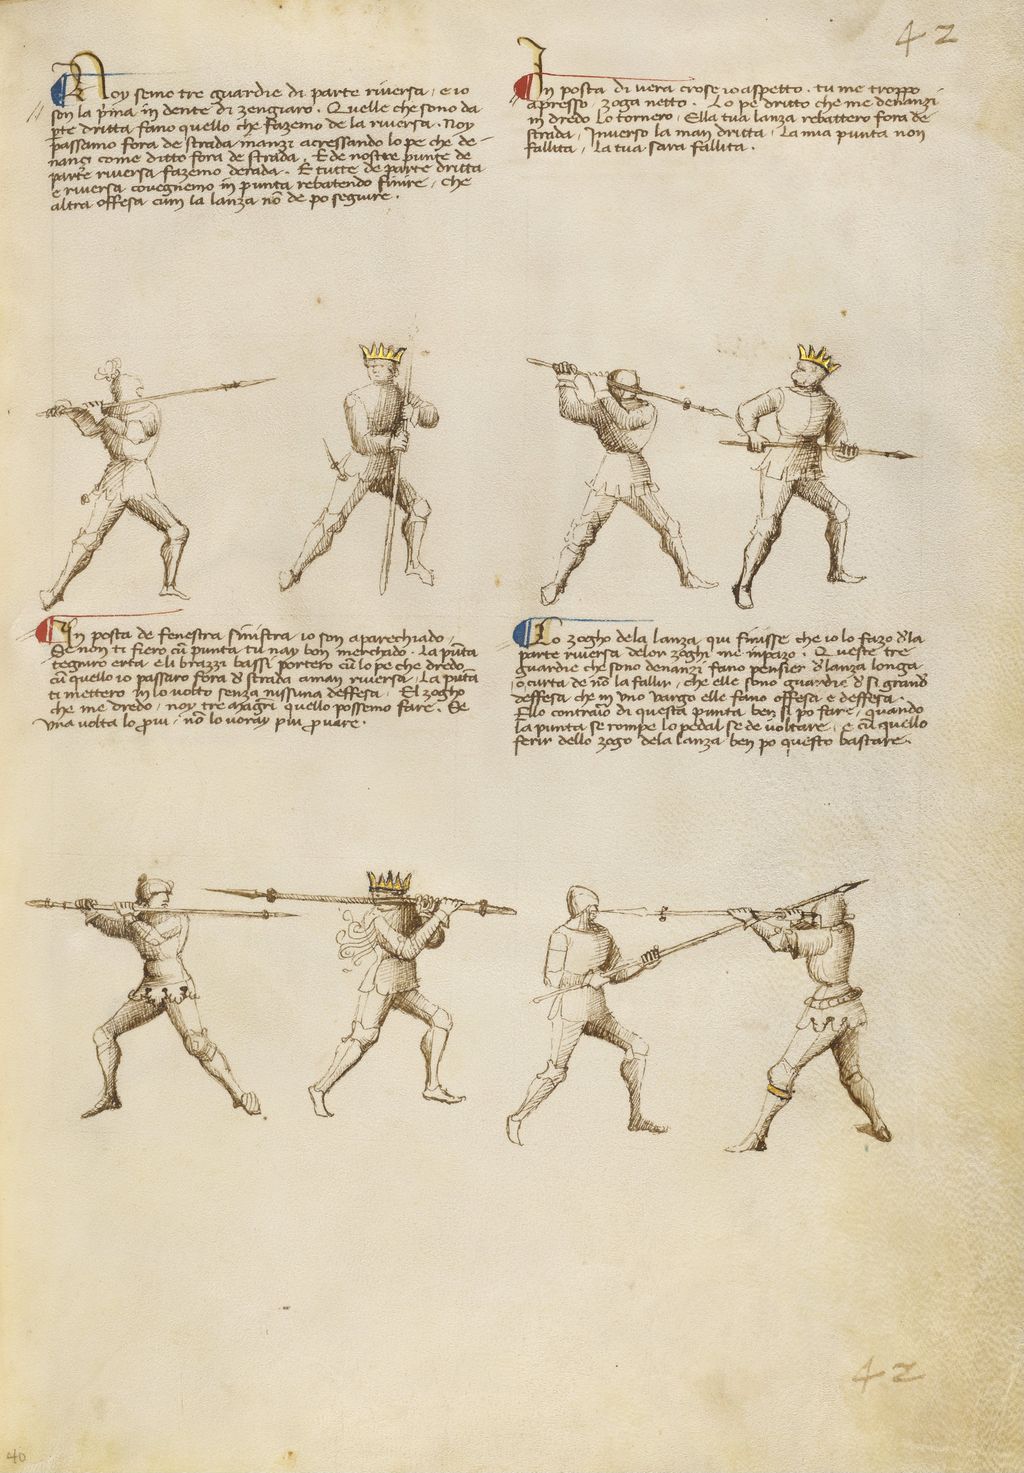 42
Noy semo tre guardie di parte riversa, e io
son la p'ina in dente di zengiaro. Quelle che sono da
pte dritta fano quello che fazemo de la riversa. Noy
passamo fora de strada inanzi acressando lo pe che de-
nanci come ditto fora de strada. E de nostre punte de
parte riversa fazemo derada. E tutte de parte dritta
e riversa covegnemo in punta rebatendo finire, che
altra offesa cum la lanza nō de po seguire.
In posta di vera crose io aspetto. tu me troppo
apresso zoga netto. Lo pe dritto che me denanzi
in dredo lo tornero, E la tua lanza rebattero fora de
strada, Inverso la man dritta, La mia punta non
fallira, la tua sara fallita.
In posta de fenestra sinistra io son aparechiado,
Se non ti fiero cū punta tu nay bon merchado. La pūta
tegniro erta e li brazzi bassi portero cū lo pe che dredo
cū quello io passaro fora d' strada a man riversa, La puta
ti mettero in lo volto senza nissuna deffesa, El zogho
che me dredo, noy tre magri quello possemo fare. Se
una volta lo prui, nō lo voray piu pruare.
Lo zogho dela lanza qui finisse che io lo fazo d' la
parte riversa delor zoghi me impazo. Queste tre
guardie che sono denanzi fano pensier d' lanza longa
o curta de nō la fallir, che elle sono guardie d' si grand'
deffesa che in uno vargo elle fano offesa e deffesa.
Ello contrario di questa punta ben si po fare, quando
la punta se rompe lo pedal se de voltare, e cū quello
ferir dello zogo dela lanza ben po questo bastare.
42
40